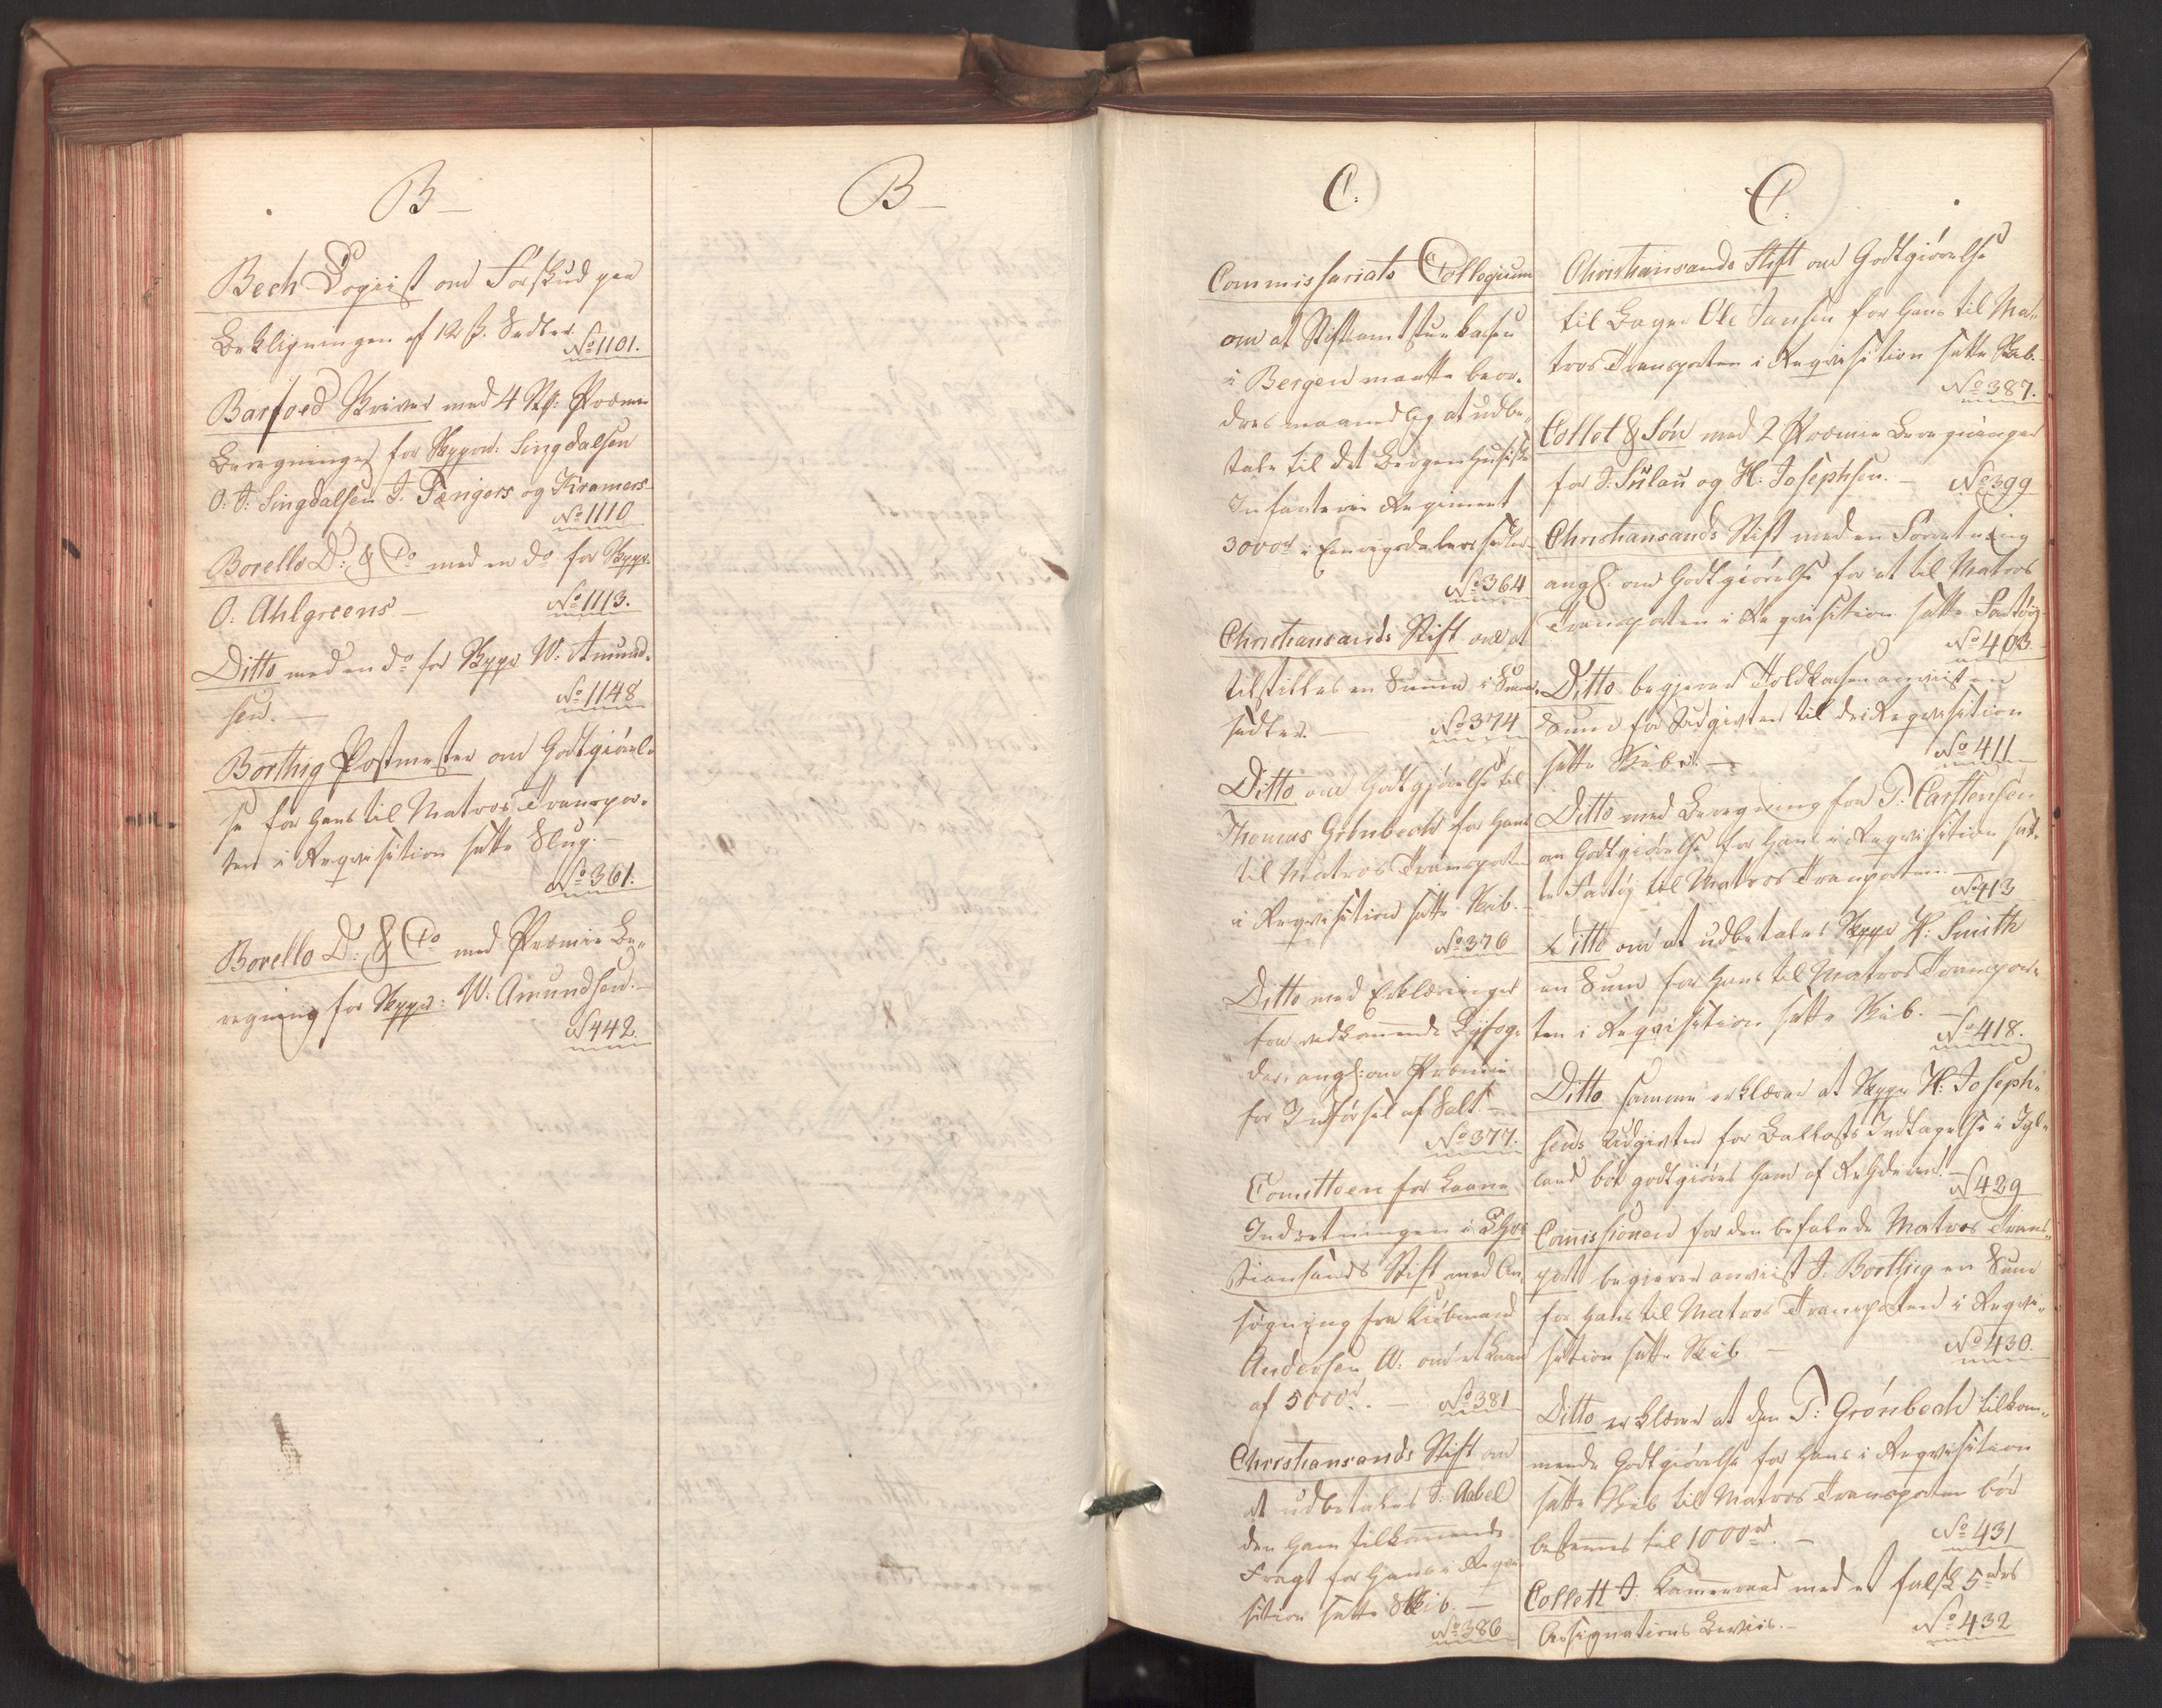 B
Bech Logiist om Forskud paa
Bekligningen af 12 ß. Sedler.
No 1101.
Barfoed Skriver med 4 St: Præmie
Beregninger for Skyppr: Singdalsen
O. J: Singdalsen J. Fængers og Kramers
No 1110
Borello D: & Co med en do for Skyppr
O: Ahlgreens —
No 1113.
Ditto med en do for Skyppr W: Amund-
sen. —
No 1148
Borthig Postmester om Godtgiørel-
se for hans til Matros Transpor-
ten i Reqvisition satte Slug. —
No 361.
Borello D: & Co med Præmie Be-
regning for Skyppr: W: Amundsen. —
No 442.
B
C.
Commissariats Collegium
om at Stiftamtstuekassen
i Bergen maatte beor-
dres maanedlig at udbe-
tale til det Bergenhusiske
Infanterie Regiment
3000 rd i Eenrigsdalerssedler
No 364
Christiansands Stift om at
tilstilles en Summa i Smaae
sedler. —
No 374
Ditto om Godtgjørelse til
Thomas Grönbech for hans
til Matros Transporten
i Reqvisition satte Skib. —
No 376
Ditto med Erklæringer
fra vedkommende Byfog-
der, angl: om Præmie
for Indførsel af Salt —
No 377.
Comitteen for Laane
Indretningen i Chri
stiansands Stift med An
søgning fra Kiøbmand
Andersen W: om et Laan
af 5000 rd. —
No 381
Christiansands Stift om
at udbetales J: Aabel
den ham tilkommende
Fragt for hans i Reqvi
sition satte Skib. —
No 386
C.
Christiansands Stift om Godtgiørelse
til Ole Jansen for hans til Ma-
tros Transporten i Reqvisition satte Skib.
No 387.
Collet & Søn med 2 Præmie Beregninger
for J: Sülau og H. Josephsen. —
No 399
Christiansands Stift med en Forretning
angl: om Godtgiørelse for et til Matros
Transporten i Reqvisition satte Fartøig
No 403.
Ditto begjerer Toldkassen anviist en
Sum for Udgivter til de i Reqvisition
satte Skibe. —
No 411
Ditto med Beregning fra T: Carstensen
om Godtgiørelse for hans i Reqvisition sat-
te Fartøj til Matros Transporten. —
No 413
Ditto om at udbetales Skyppr H: Smith
en Sum for hans til Matros Transpor-
ten i Reqvisition satte Skib. —
No 418.
Ditto samme erklærer at Skyppr H: Joseph-
sens Udgivter for Ballasts Indtagelse i Jyl-
land bør godtgiøres ham af Rhederen. —
No 429
Comissionen for den befalede Matros Trans-
port begierer anviist J: Borthig en Sum
for hans til Matros Transporten i Reqvi-
sition satte Skib —
No 430.
Ditto erklærer at den T: Grönbech tilkom-
mende Godtgiørelse for hans i Reqvisition
satte Skib til Matros Transporten bør
bestemmes til 1000 rd. —
No 431
Collett J. Kammerraad med et falsk 5 rdrs
Assignations Beviis. —
No 432